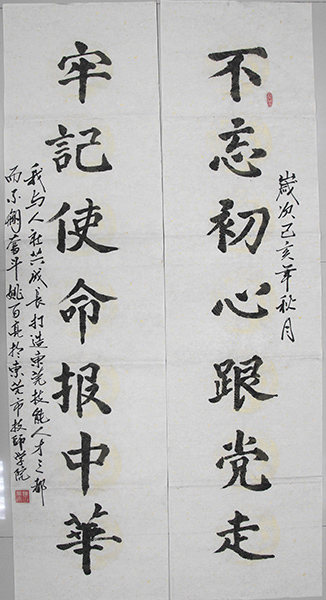 不忘初心跟党走
歲次己亥年秋月
牢記使命报中華
我与人社共成長打造东莞技能人才之都
而不懈奮斗姚百亮於东莞市技師学院